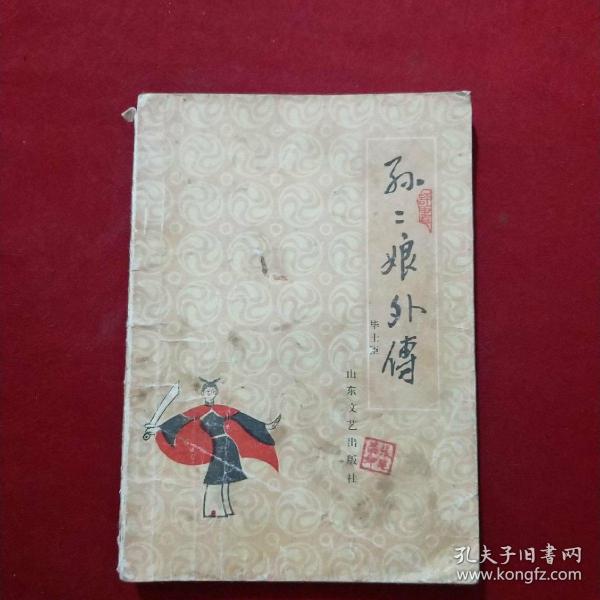 孙二娘外傳
评书
毕士臣
山东文艺出版社
孔夫子旧书网
www.kongfz.com